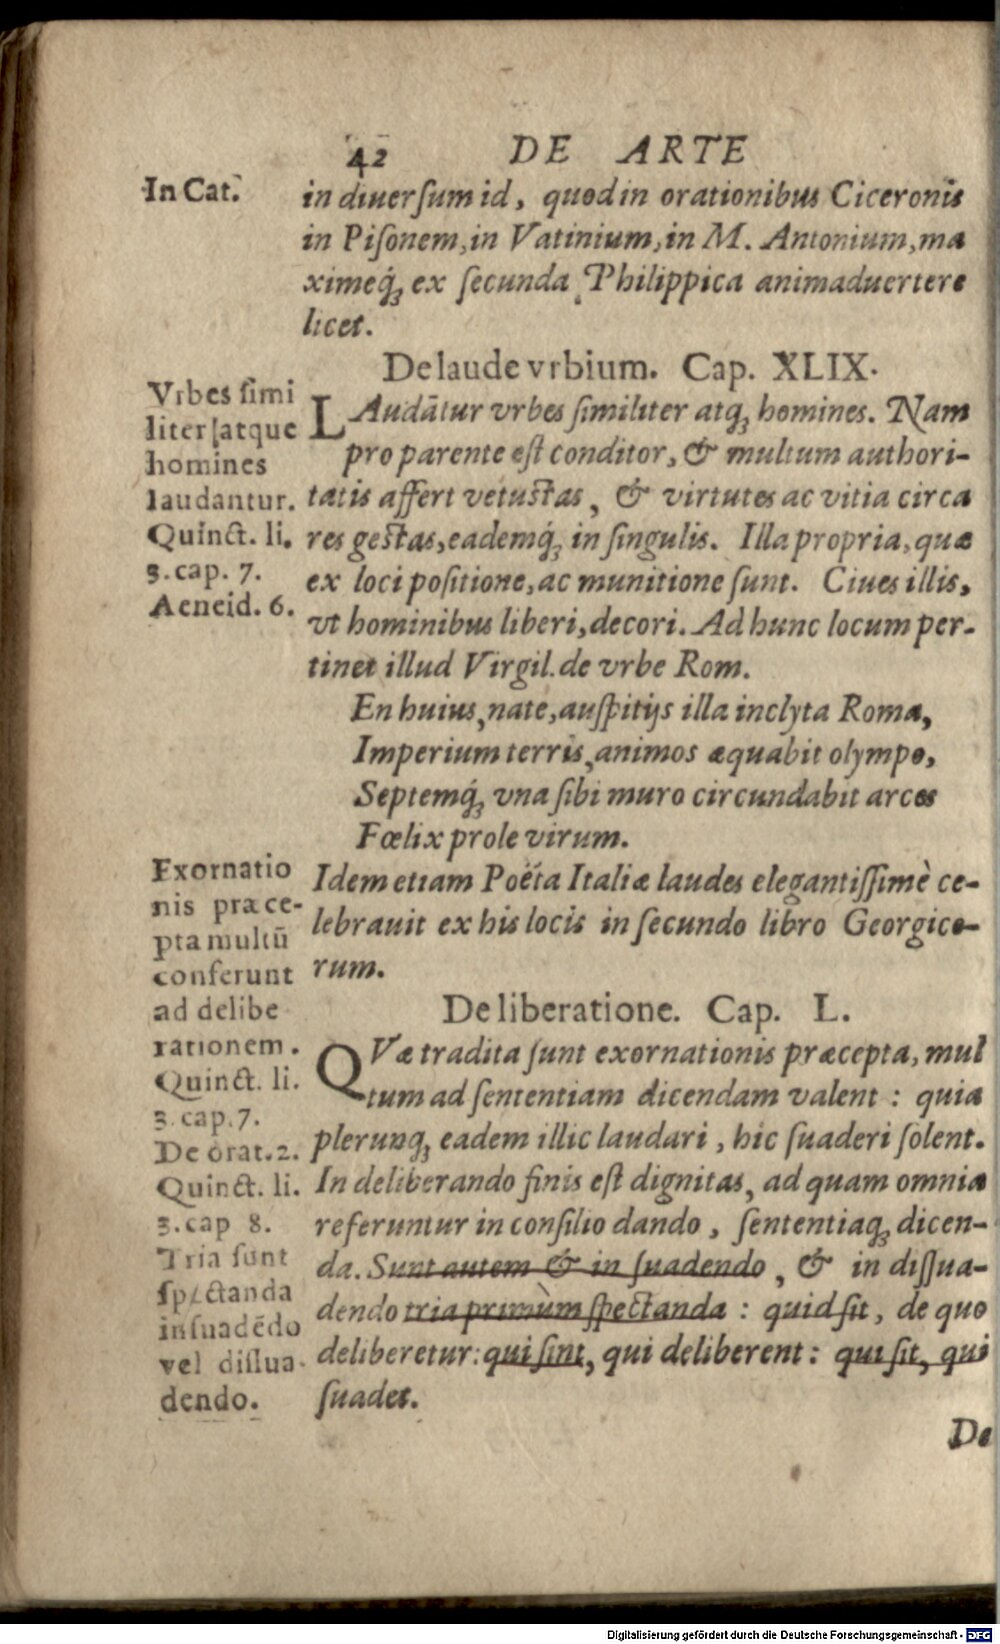 42 DE ARTE
In Cat.
in diuersum id, quod in orationibus Ciceronis
in Pisonem, in Vatinium, in M. Antonium, ma
ximeq́ꝫ ex secunda Philippica animaduertere
licet.
De laude vrbium. Cap. XLIX.
Vrbes simi
liter atque
homines
laudantur.
Quinct. li.
3. cap. 7.
Aeneid. 6.
LAudātur vrbes similiter atqꝫ homines. Nam
pro parente est conditor, & multum authori-
tatis affert vetustas, & virtutes ac vitia circa
res gestas, eademq́ꝫ in singulis. Illa propria, quæ
ex loci positione, ac munitione sunt. Ciues illis,
vt hominibus liberi, decori. Ad hunc locum per-
tinet illud Virgil. de vrbe Rom.
En huius, nate, auspitijs illa inclyta Roma,
Imperium terris, animos æquabit olympo,
Septemq́ꝫ vna sibi muro circundabit arces
Fœlix prole virum.
Exornatio
nis præce-
pta multū
conferunt
ad delibe
rationem.
Quinct. li.
3. cap. 7.
De orat. 2.
Quinct. li.
3. cap 8.
Tria sunt
spectanda
in suadēdo
vel dissua-
dendo.
Idem etiam Poëta Italiæ laudes elegantissimè ce-
lebrauit ex his locis in secundo libro Georgico-
rum.
De liberatione. Cap. L.
QVæ tradita sunt exornationis præcepta, mul
tum ad sententiam dicendam valent : quia
plerunqꝫ eadem illic laudari, hic suaderi solent.
In deliberando finis est dignitas, ad quam omnia
referuntur in consilio dando, sententiaqꝫ dicen-
da. Sunt autem & in suadendo, & in dissua-
dendo tria primùm spectanda : quid sit, de quo
deliberetur: qui sint, qui deliberent: qui sit, qui
suadet.
De
Digitalisierung gefördert durch die Deutsche Forschungsgemeinschaft - DFG